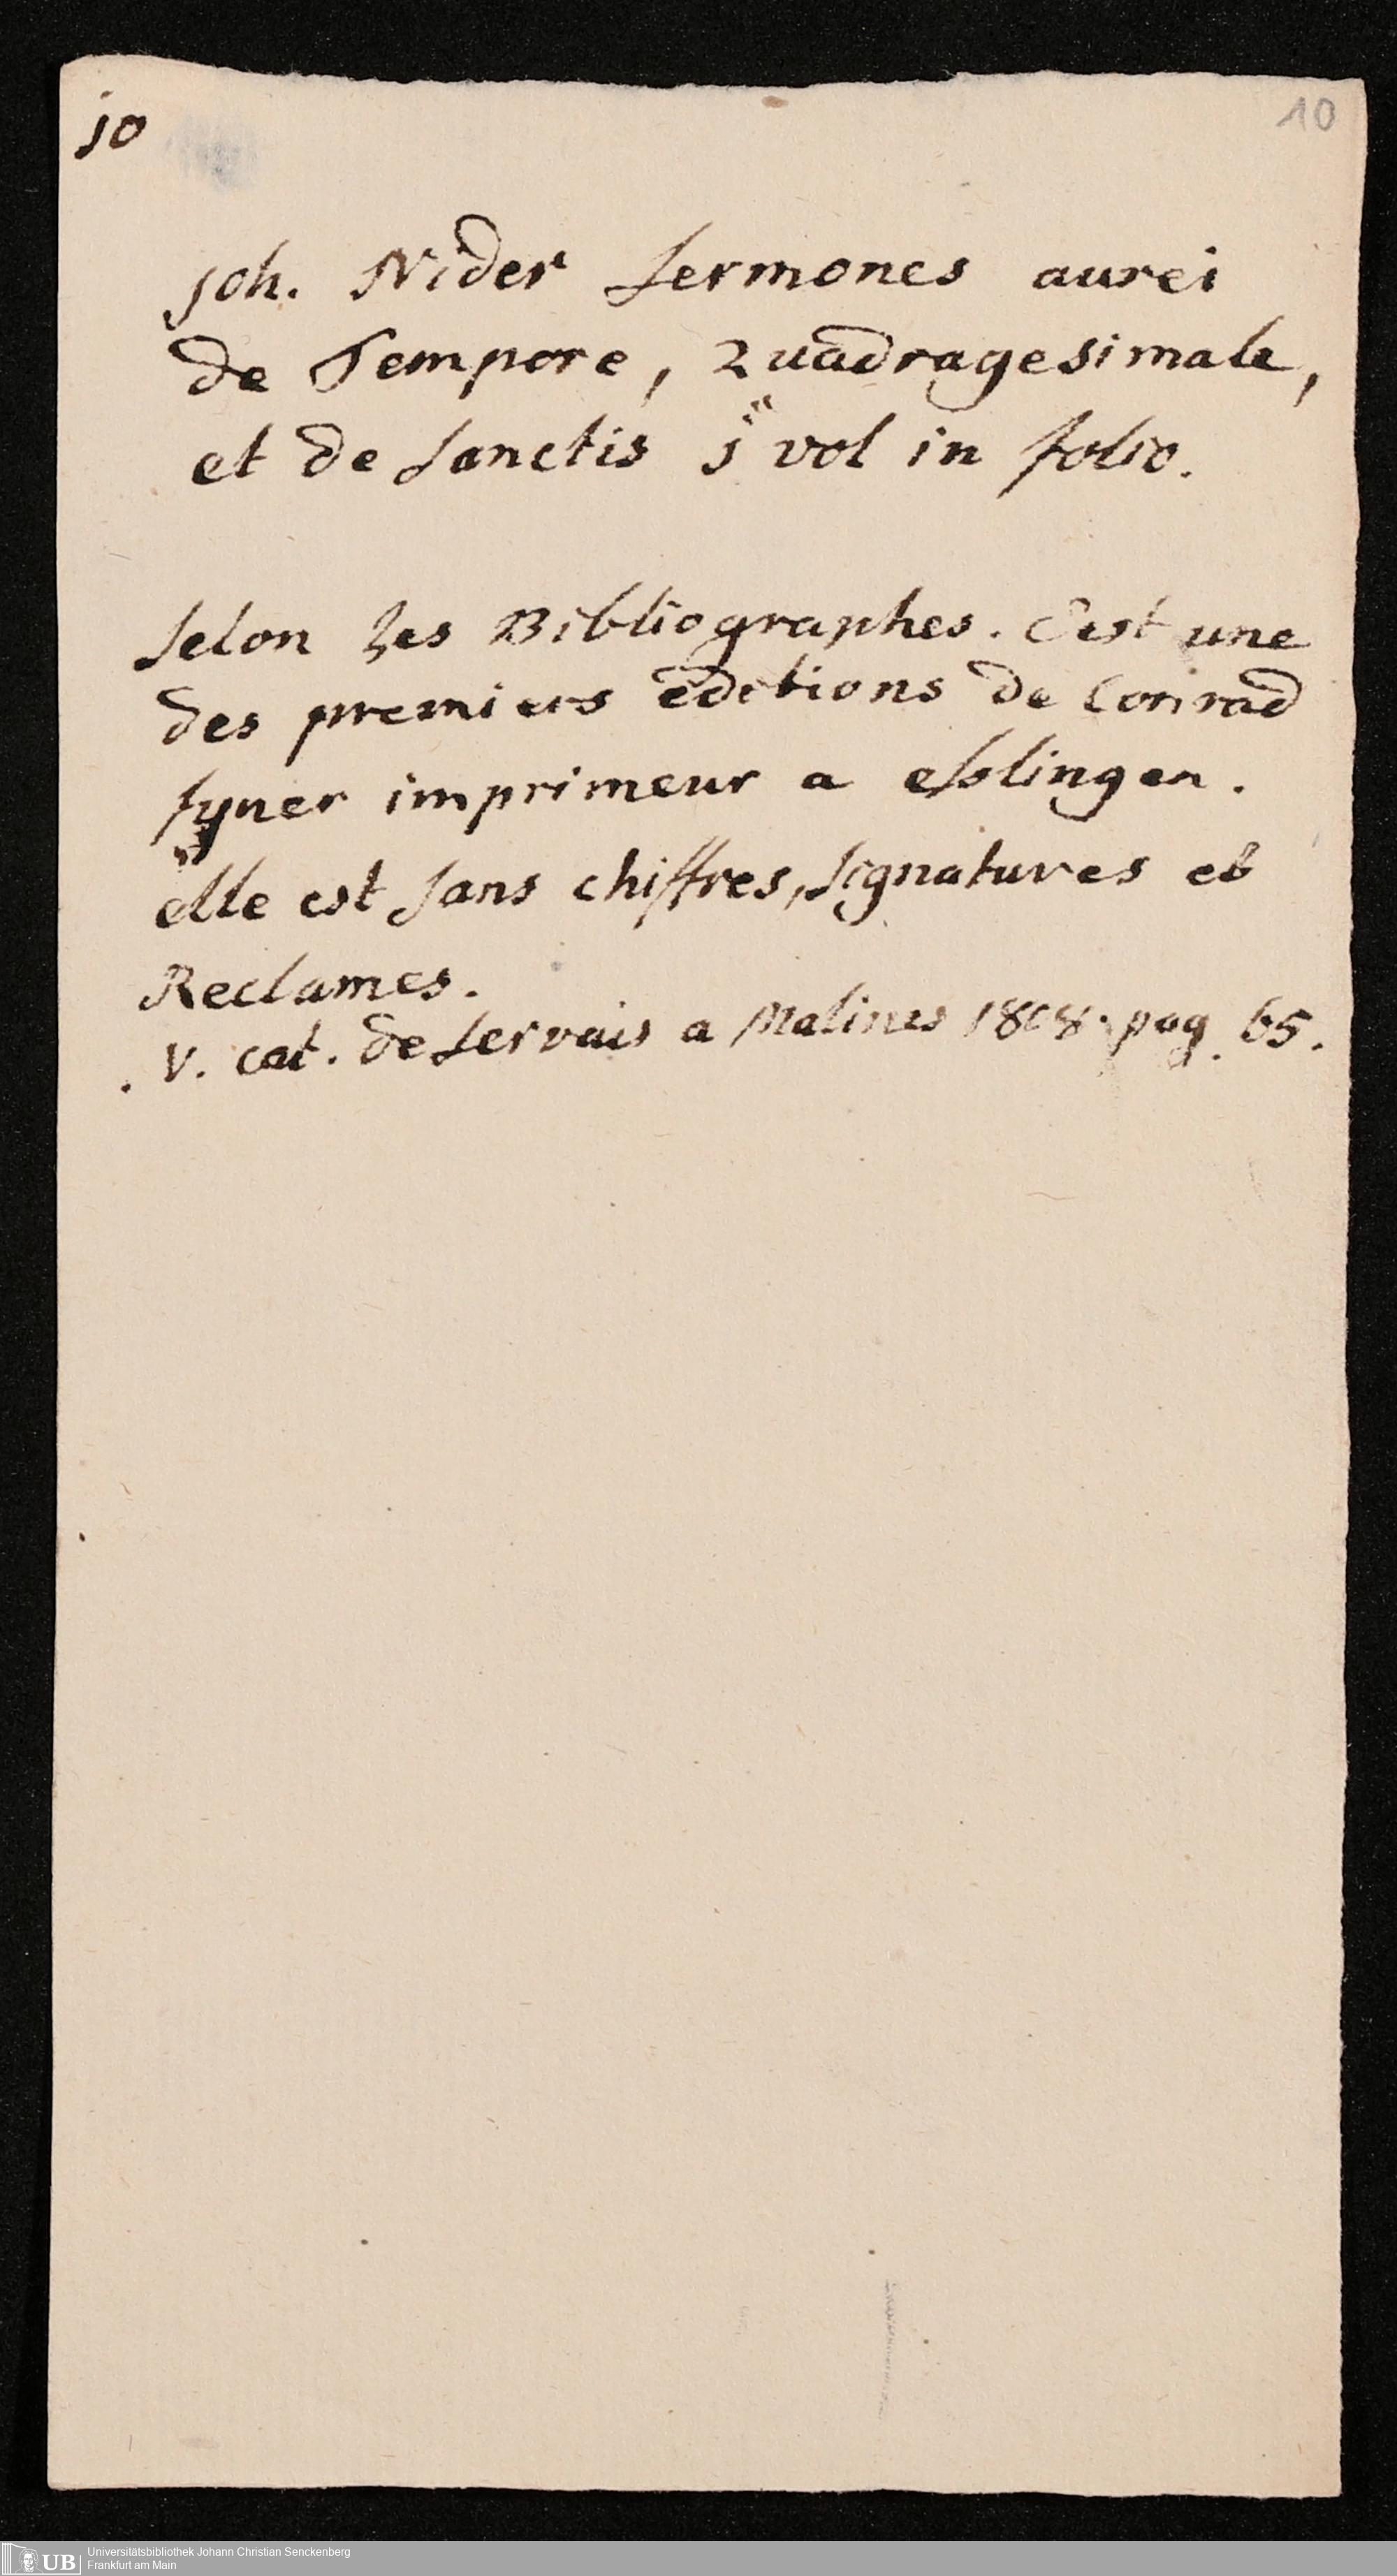 jo
10
Joh. Nider Sermones aurei
de Tempore, Quadragesimale,
et de Sanctis j" vol in folio.
Selon Les Bibliographes. C'est une
des premiers editions de Conrad
fyner imprimeur a Esslingen.
elle est sans chiffres, signatures et
Reclames.
. V. cat. de Servais a Malines 1808. pag. 65.
UB
Universitätsbibliothek Johann Christian Senckenberg
Frankfurt am Main